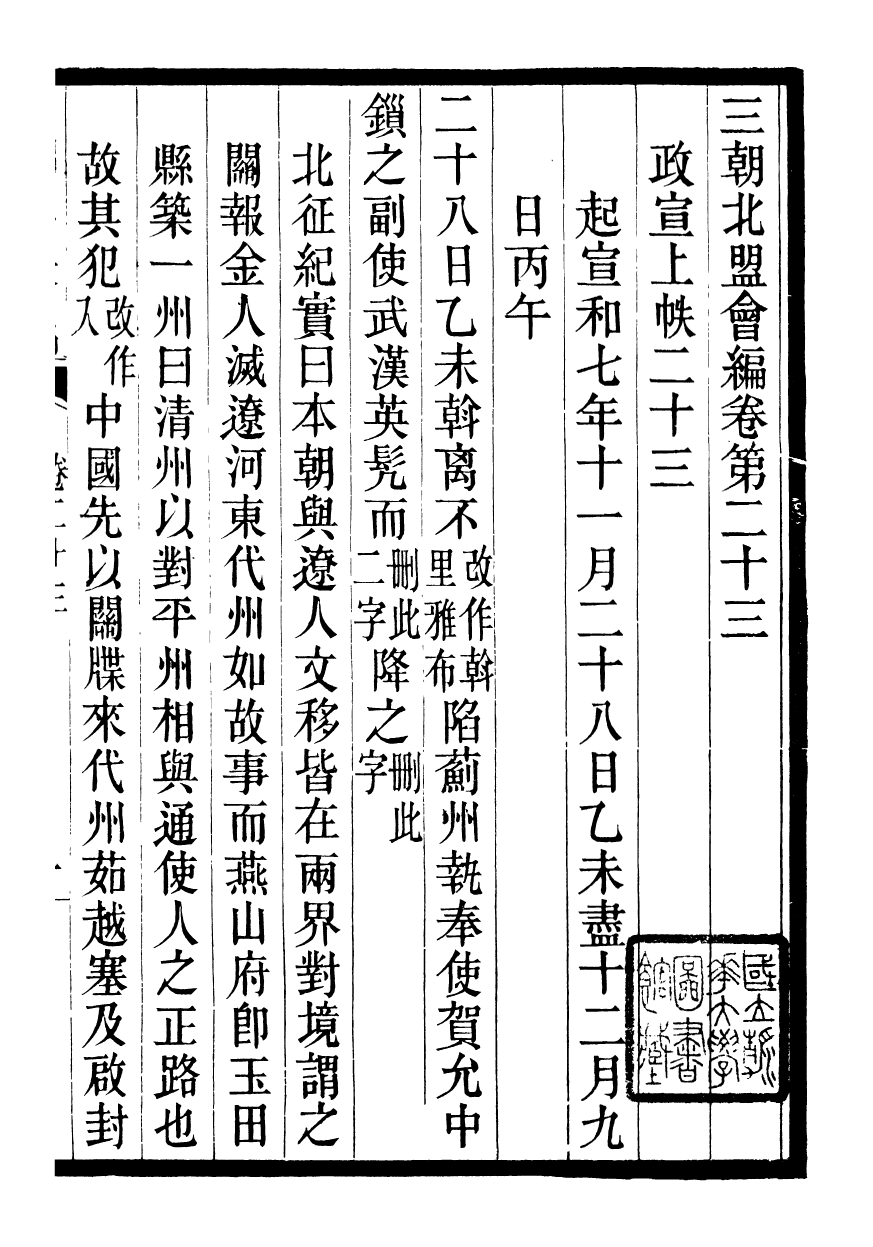 三朝北盟會編卷第二十三
政宣上帙二十三
起宣和七年十一月二十八日乙未盡十二月九
日丙午
二十八日乙未斡离不改作斡里雅布陷薊州執奉使賀允中
鎻之副使武漢英髠而刪此二字降之刪此字
北征紀實曰本朝與遼人文移皆在兩界對境謂之
關報金人滅遼河東代州如故事而燕山府卽玉田
縣築一州曰清州以對平州相與通使人之正路也
故其犯改作入中國先以關牒來代州茹越塞及啟封
卷二十三
國立清華大學圖書館藏